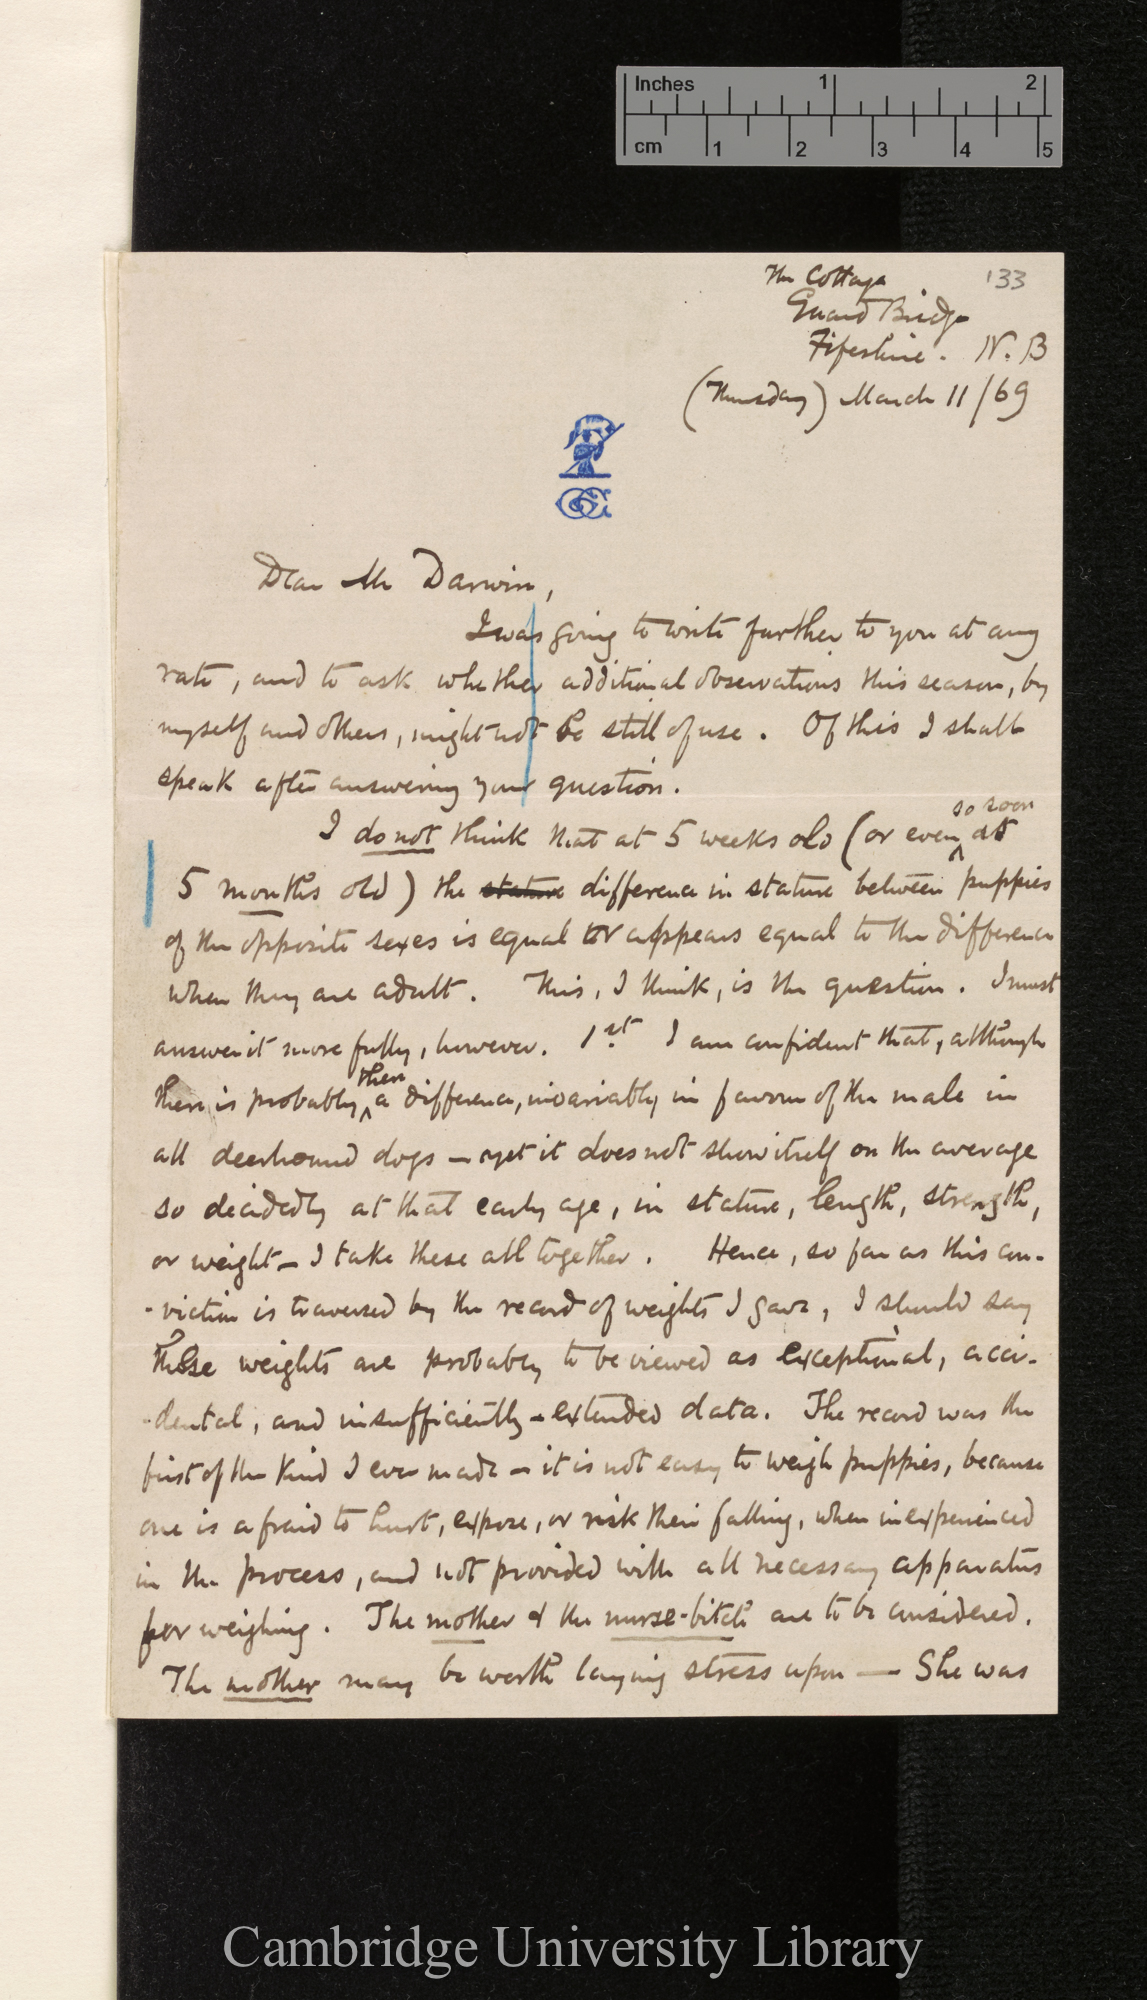 Inches 1 2
cm 1 2 3 4 5
133
The Cottage
Guard Bridge
Fifeshire. N. B
(Thursday) March 11/69
Dear Mr Darwin,
I was going to write further to you at any
rate, and to ask whether additional observations this season, by
myself and others, might not be still of use. Of this I shall
speak after answering your question.
so soon
I do not think that at 5 weeks old (or even as
5 months old) the stature difference in stature between puppies
of the opposite sexes is equal or appears equal to the difference
when they are adult. This, I think, is the question. I must
answer it more fully, however. 1st. I am confident that, although
then
there is probably a difference, invariably in favour of the male in
all deerhound dogs — yet it does not show itself on the average
so decidedly at that early age, in stature, length, strength,
or weight — I take these all together. Hence, so far as this con-
-viction is traversed by the record of weights I gave, I should say
those weights are probably to be viewed as exceptional, acci-
-dental, and insufficiently-extended data. The record was the
first of the kind I ever made — it is not easy to weigh puppies, because
one is afraid to hurt, expose, or risk their falling, when inexperienced
in the process, and not provided with all necessary apparatus
for weighing. The mother & the nurse-bitch are to be considered.
The mother may be worth laying stress upon — She was
Cambridge University Library